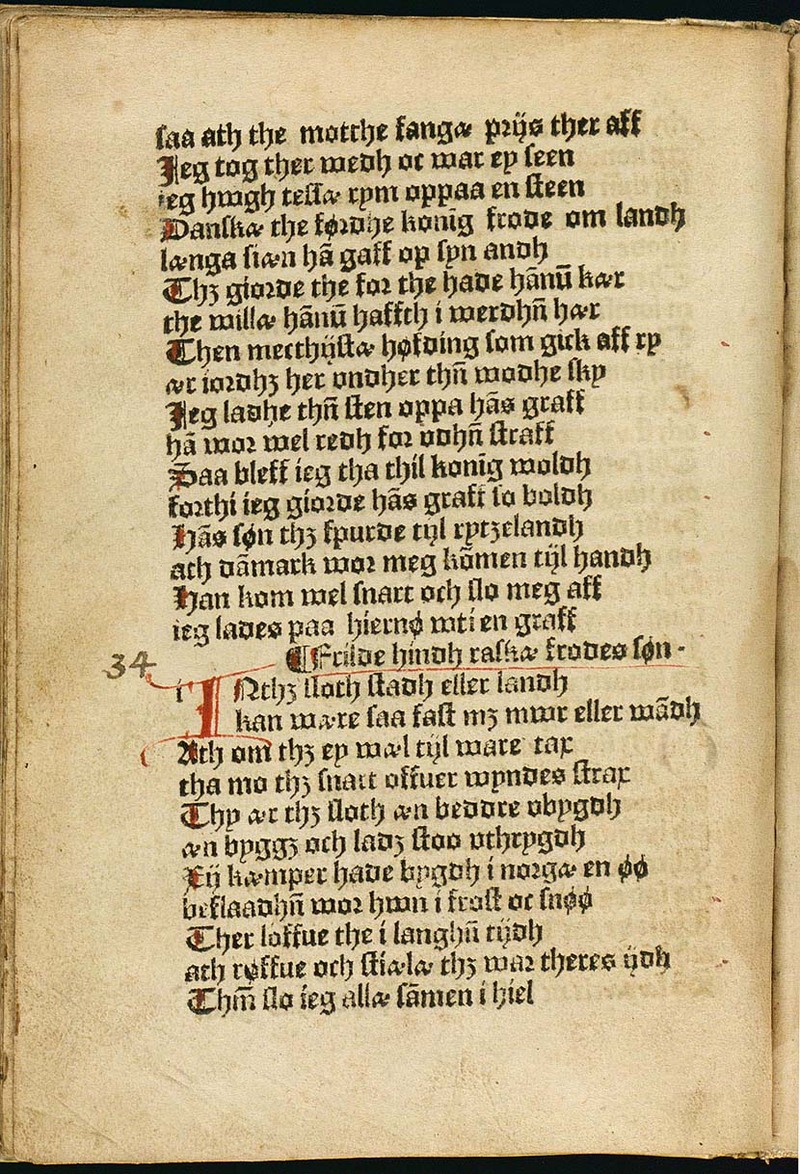 saa ath the motthe fangæ prijs ther aff
Jeg tog ther wedh oc war ey seen
ieg hwgh tessæ rym oppaa en steen
Danskæ the førdhe konīg frode om landh
længa siæn hā gaff op syn andh
Thꝫ giorde the for the hade hānū kær
the willæ hānū haffth i werdhn̄ hær
Then mecthijstæ høfding som gick aff ry
ær iordhꝫ her vndher thn̄ wodhe sky
Jeg ladhe thn̄ sten oppa hās graff
hā wor wel redh for vdhn̄ straff
Saa bleff ieg tha thil konīg woldh
forthi ieg giorde hās graff so boldh
Hās søn thꝫ spurde tijl rytzelandh
ath dāmark wor meg kōmen tijl handh
Han kom wel snart och slo meg aff
ieg lades paa hiernø wti en graff
34 ¶Frilde hindh raskæ frodes søn
i INthꝫ sloth stadh eller landh
kan wære saa fast mꝫ mwr eller wādh
Ath om thꝫ ey wæl tijl ware tax
tha mo thꝫ snart offuer wyndes strax
Thy ær thꝫ sloth æn beddre vbygdh
æn byggꝫ och ladꝫ stoo vthrygdh
Xij kæmper hade bygdh i norgæ en øø
beflaadhn̄ wor hwn i frost oc snøø
Ther loffue the i langhn̄ tijdh
ath røffue och stiælæ thꝫ war theres ijdh
Thm̄ slo ieg allæ sāmen i hiel